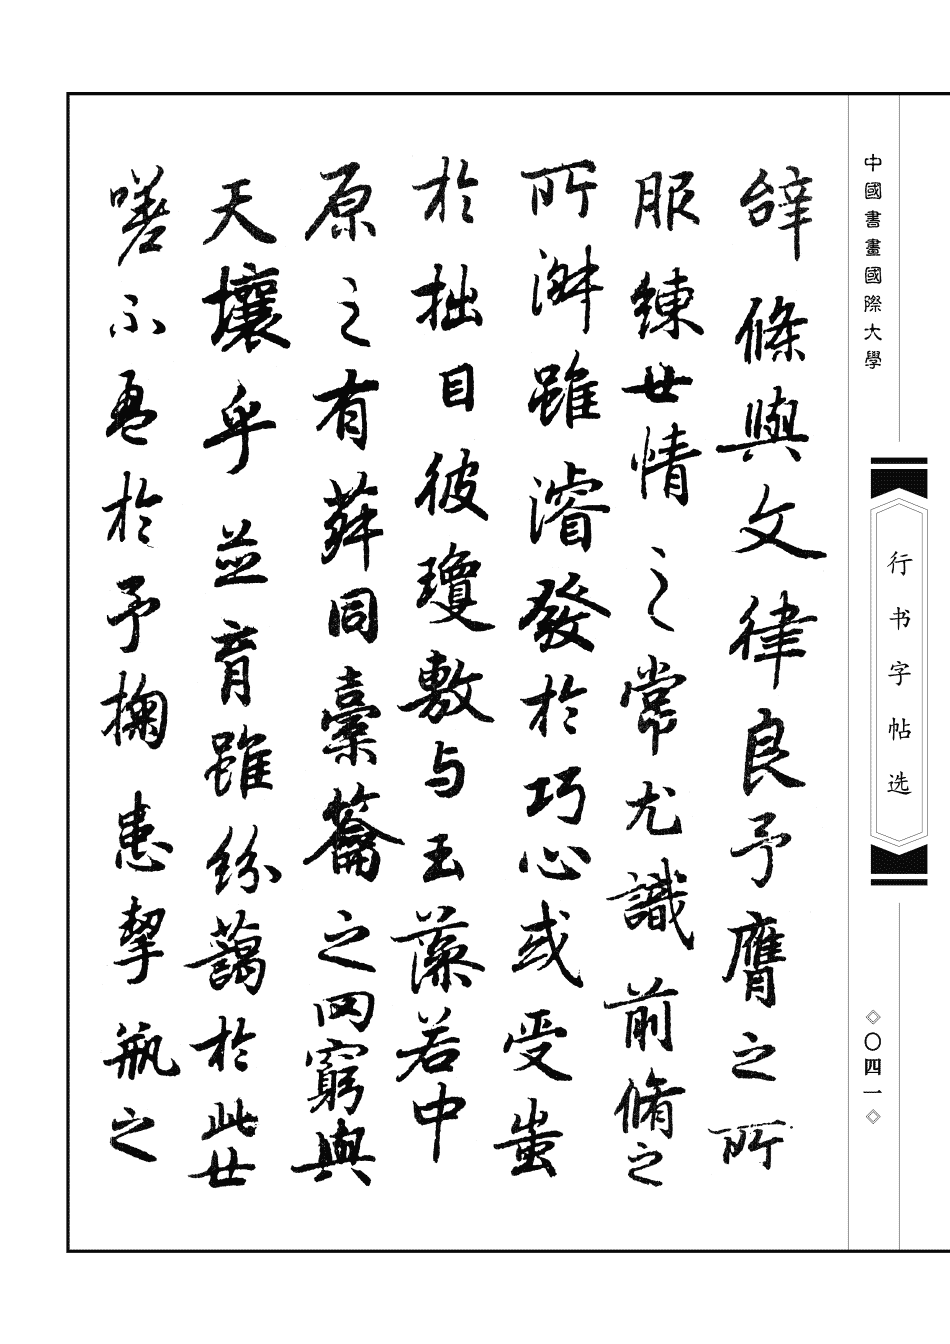 中國書畫國際大學
行书字帖选
◇〇四一◇
辭條與文律良予膺之所
服練世情之常尤識前脩之
所淑雖濬發於巧心或受蚩
於拙目彼瓊敷与玉藻若中
原之有菽同橐籥之罔窮與
天壤乎並育雖紛藹於此世
嗟不盈於予掬患挈瓶之